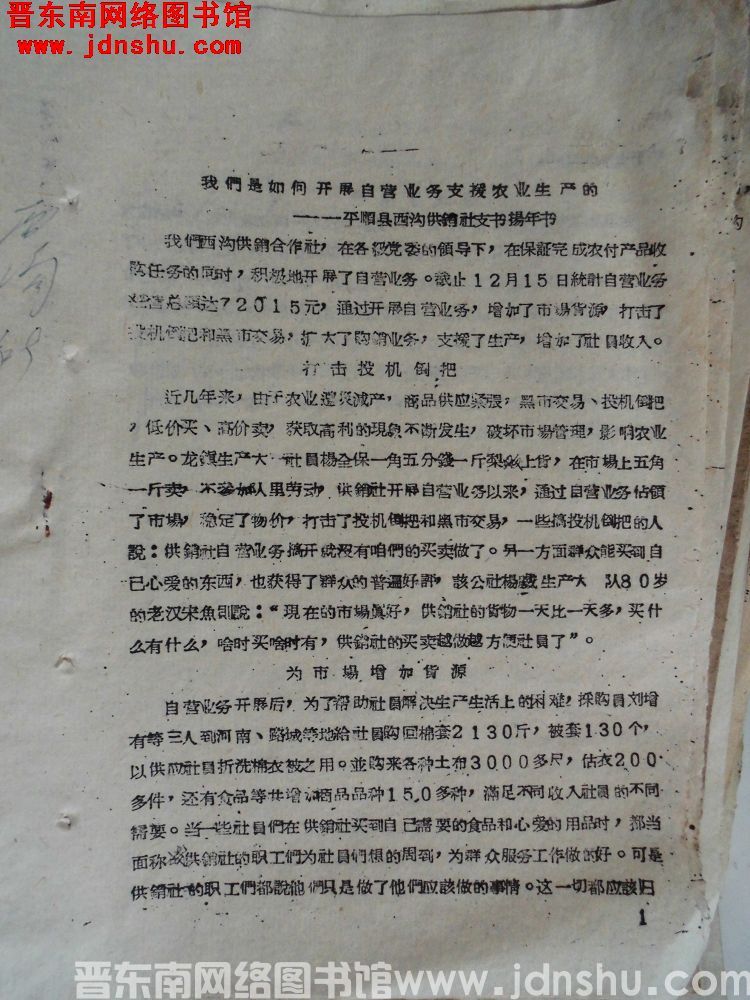 晋东南网络图书馆
www.jdnshu.com
我們是如何开展自营业务支援农业生产的
———平順县西沟供銷社支书楊年书
我們西沟供銷合作社，在各級党委的領导下，在保証完成农付产品收
购任务的同时，积极地开展了自营业务。截止12月15日統計自营业务
经营总额达72015元，通过开展自营业务，增加了市場貨源，打击了
投机倒把和黑市交易，扩大了购銷业务，支援了生产，增加了社員收入。
打击投机倒把
近几年来，由于农业遭災減产，商品供应緊張，黑市交易、投机倒把
，低价买、高价卖，获取高利的現象不断发生，破坏市場管理，影响农业
生产。龙鎮生产大 社員楊全保一角五分錢一斤梨 上貨，在市場上五角
一斤卖，不参加队里劳动，供銷社开展自营业务以来，通过自营业务佔領
了市場，稳定了物价，打击了投机倒把和黑市交易，一些搞投机倒把的人
說：供銷社自营业务搞开就沒有咱們的买卖做了。另一方面群众能买到自
己心爱的东西，也获得了群众的普遍好評，該公社楊威生产大 队80岁
的老汉宋魚則說：“現在的市場眞好，供銷社的货物一天比一天多，买什
么有什么，啥时买啥时有，供銷社的买卖越做越方便社員了”。
为市場增加貨源
自营业务开展后，为了帮助社員解决生产生活上的困难，採购員刘增
有等三人到河南、路城等地給社員购回棉套2130斤，被套130个，
以供应社員拆洗棉衣被之用。並购来各种土布3000多尺，估衣200
多件，还有食品等共增 商品品种150多种，滿足不同收入社員的不同
需要。当一些社員們在供銷社买到自己需要的食品和心爱的用品时，都当
面称 供銷社的职工們为社員們想的周到，为群众服务工作做的好。可是
供銷社的职工們都說他們只是做了他們应該做的事情。这一切都应該归
1
晋东南网络图书馆www.jdnshu.com